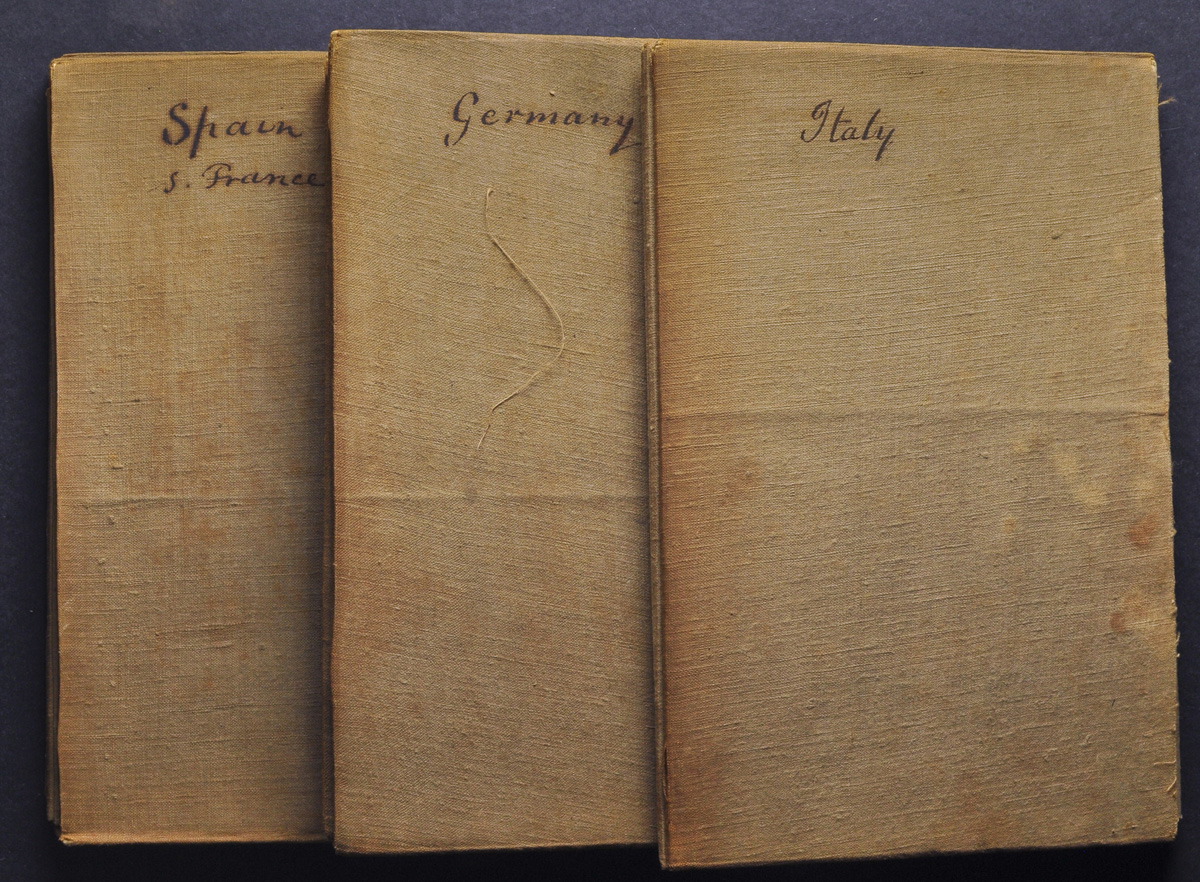 Spain
s. France
Germany
Italy